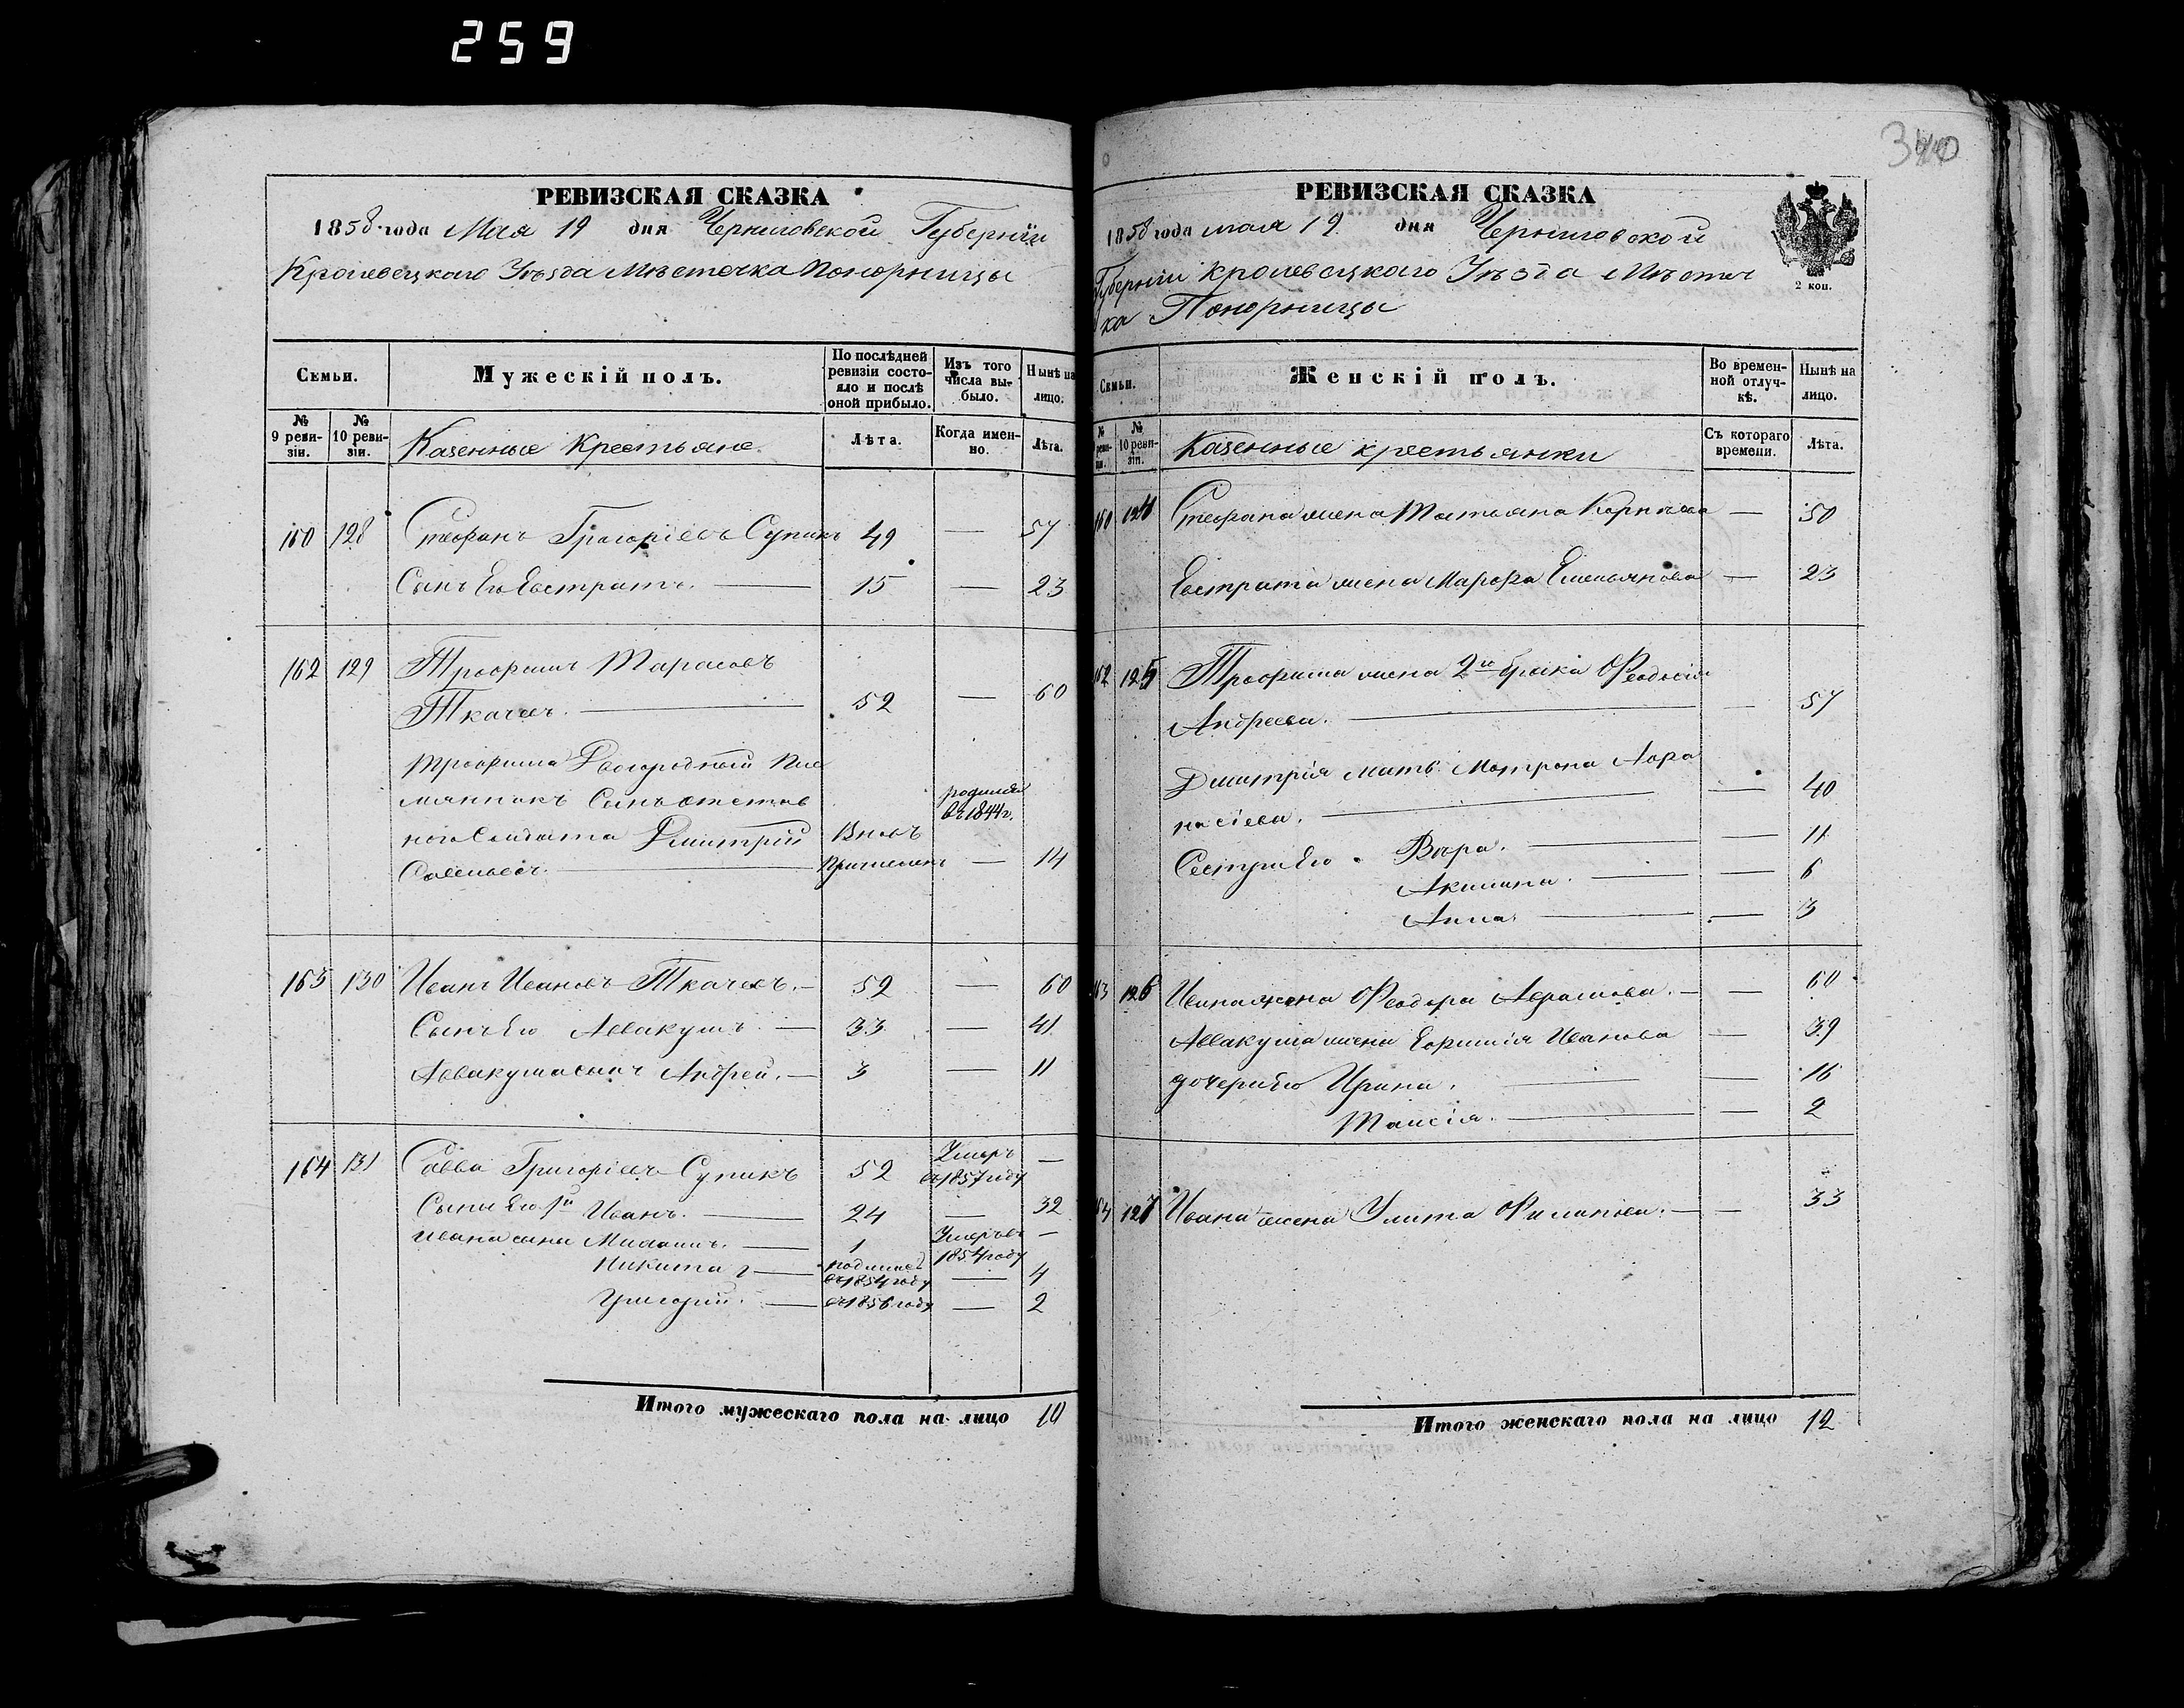 259
РЕВИЗСКАЯ СКАЗКА
1858 года Мая 19 дня Черниговской Губерніи
Кролевецкаго Уѣзда Мѣстечка Понорницы
Семьи. Мужескій полъ. По послѣдней ревизіи состояло и послѣ оной прибыло. Изъ того числа выбыло. Нынѣ на лицо.
№ 9 ревизіи. № 10 ревизіи. Казенные Крестьяне. Лѣта. Когда именно. Лѣта.
160 128 Стефанъ Григоріевъ Супикъ 49 — 57
Сынъ Его Евстратъ. — 15 — 23
162 129 Трофимъ Тарасовъ
Ткачевъ. — 52 — 60
Трофима Двоюродный Пле
мянникъ Сынъ отстав родился
наго Солдата Дмитрій Вновь въ 1844 г.
Савельевъ. — — 14
163 130 Иванъ Ивановъ Ткачевъ. — 52 — 60
Сынъ Его Аввакумъ. — 33 — 41
Аввакума сынъ Андрей. — 3 — 11
164 131 Савва Григоріевъ Супикъ 52 Умеръ въ 1857 году —
Сыны Его 1й Иванъ. — 24 — 32
Ивана сыны — 1 Умеръ въ 1854 году —
Никита — родился въ 1854 году — 4
Григорій. — въ 1856 году — 2
Итого мужескаго пола на лицо 10
340
РЕВИЗСКАЯ СКАЗКА
1858 года мая 19 дня Черниговской
Губерніи Кролевецкаго Уѣзда Мѣстеч
ка Понорницы
2 коп.
Семьи. Женскій полъ. Во временной отлучкѣ. Нынѣ на лицо.
№ ревизіи. № 10 ревизіи. Казенные крестьянки Съ котораго времени. Лѣта.
160 124 Стефана жена Татьяна — 50
Евстрата жена Марфа Емельянова — 23
162 125 Трофима жена 2го брака Феодосія
Андреева. — — 57
Дмитрія мать Матрона Афа
насіева. — — 40
Сестры Его Вѣра. — — 11
Акилина. — — 6
Анна. — — 3
163 126 Ивана жена Феодора Аврамова. — — 60
Аввакума жена Евфимія Иванова — 39
дочери Его Ирина. — — 16
Таисія. — — 2
164 127 Ивана жена Улита Филипьева. — — 33
Итого женскаго пола на лицо 12